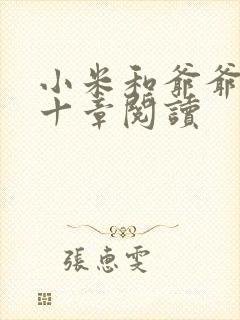 小米和爺爺
十章閱讀
張惠雯